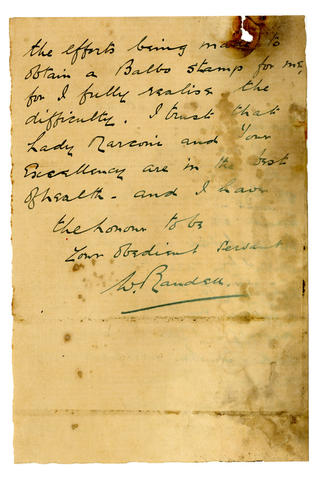 the efforts being made to
obtain a Balbo stamp for me,
for I fully realise the
difficulty. I trust that
Lady Marconi and Your
Excellency are in the best
of health - and I have
the honour to be
Your obedient servant
W. Randell.